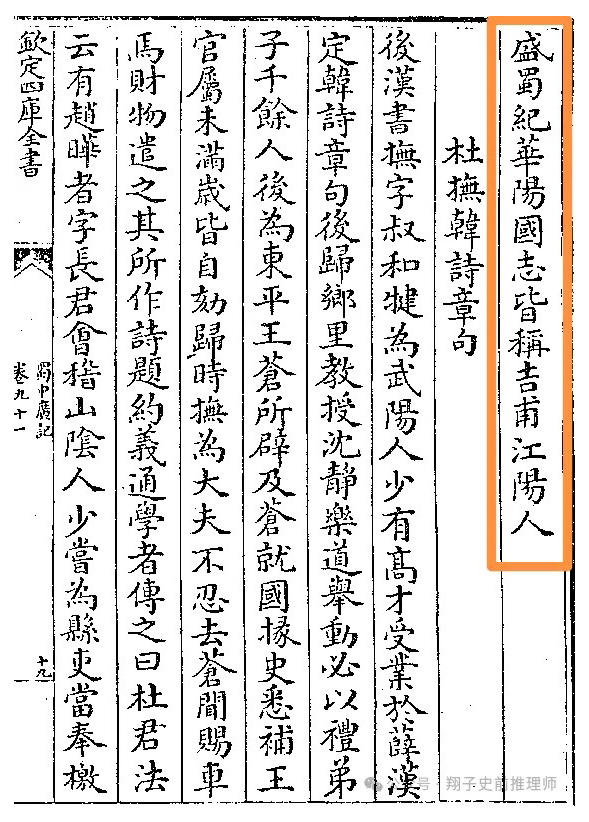 盛蜀紀華陽國志皆稱吉甫江陽人
杜撫韓詩章句
後漢書撫字叔和犍為武陽人少有髙才受業於薛漢
定韓詩章句後歸鄉里教授沈静樂道舉動必以禮弟
子千餘人後為東平王蒼所辟及蒼就國掾史悉補王
官屬未滿歳皆自劾歸時撫為大夫不忍去蒼聞賜車
馬財物遣之其所作詩題約義通學者傳之曰杜君法
云有趙曄者字長君會稽山陰人少嘗為縣吏當奉檄
欽定四庫全書
蜀中廣記
卷九十一
十九
公众号·翔子史前推理师